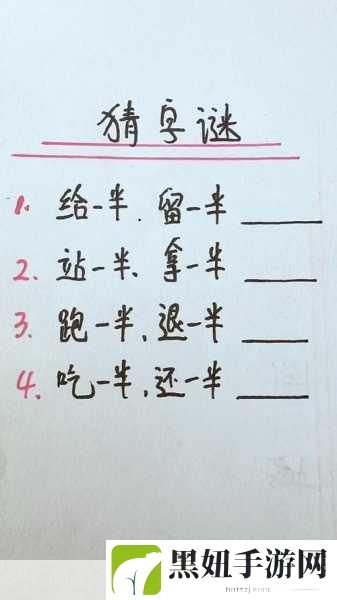 猜字谜
1. 给一半.留一半
2. 站一半、拿一半
3. 跑一半、退一半
4. 吃一半,还一半
黑妞手游网